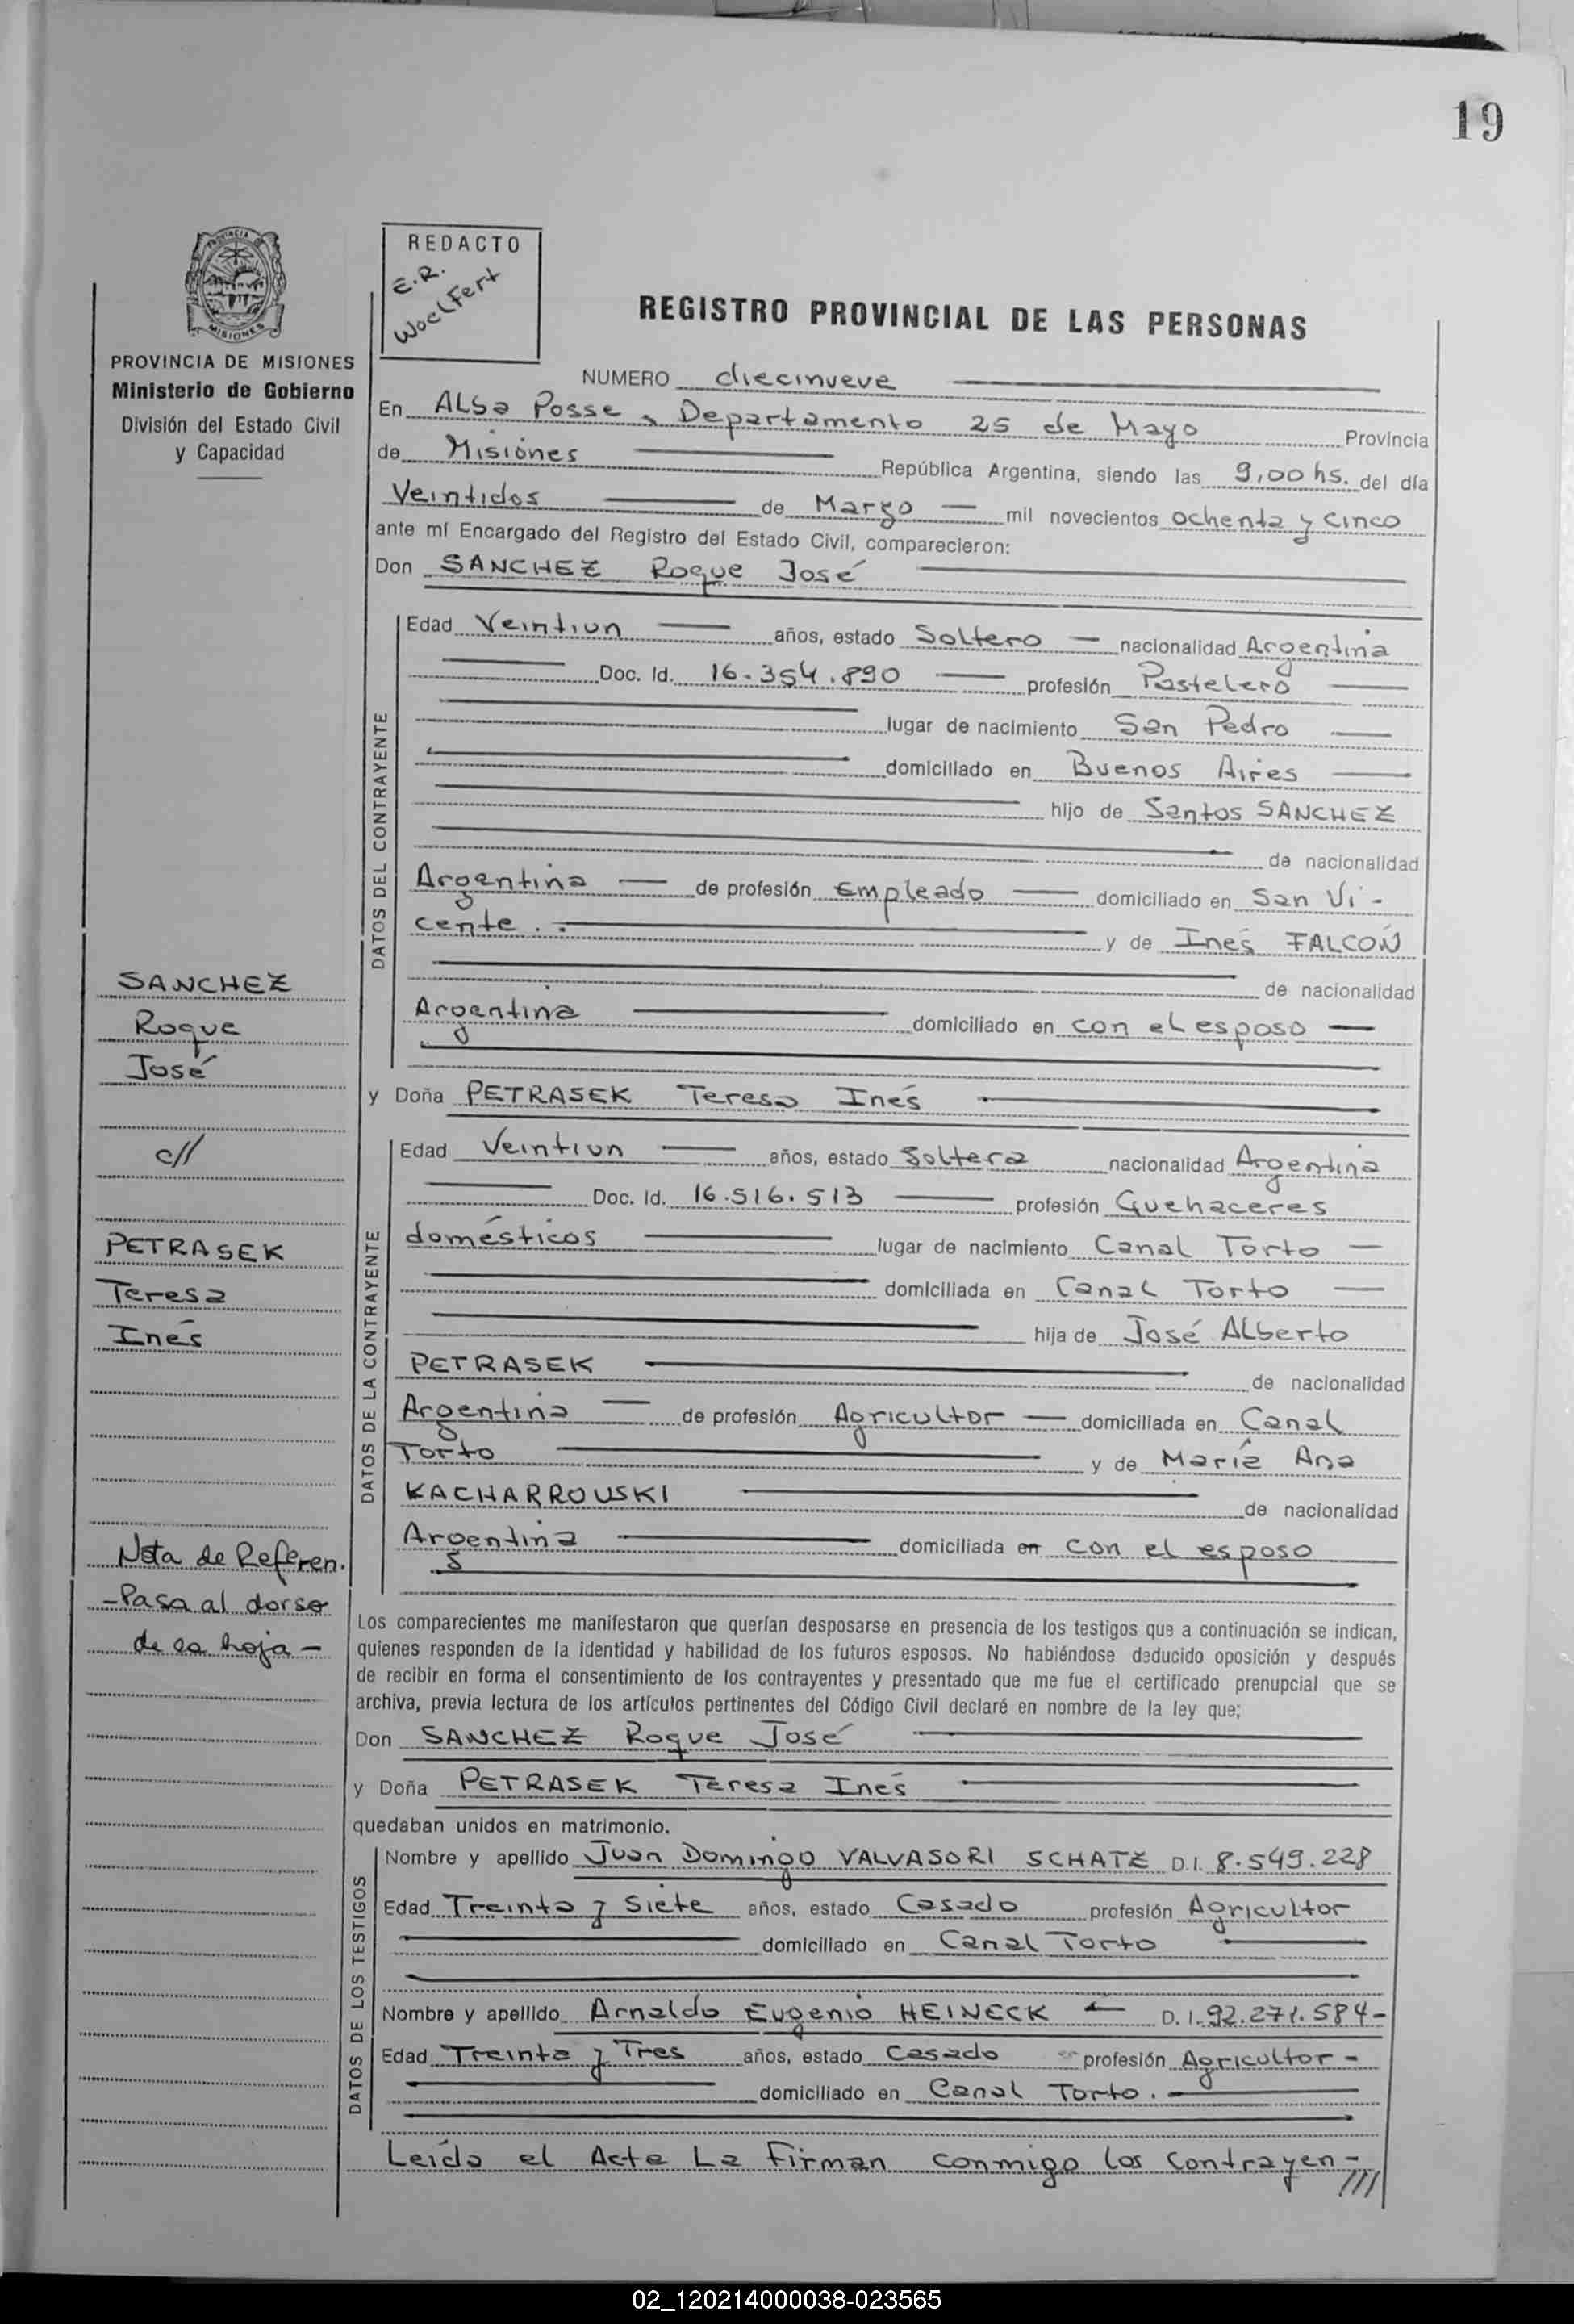 19
PROVINCIA DE
MISIONES
PROVINCIA DE MISIONES
Ministerio de Gobierno
División del Estado Civil
y Capacidad
REDACTO
E.R.
Woelfert
REGISTRO PROVINCIAL DE LAS PERSONAS
NUMERO diecinueve
En ALba Posse, Departamento 25 de Mayo Provincia
de Misiones República Argentina, siendo las 9,00 hs. del día
Veintidos de Marzo mil novecientos ochenta y cinco
ante mí Encargado del Registro del Estado Civil, comparecieron:
Don SANCHEZ Roque José
DATOS DEL CONTRAYENTE
Edad Veintiun años, estado Soltero nacionalidad Argentina
Doc. Id. 16.354.890 profesión Pastelero
lugar de nacimiento San Pedro
domiciliado en Buenos Aires
hijo de Santos SANCHEZ
de nacionalidad
Argentina de profesión Empleado domiciliado en San Vi-
cente.. y de Inés FALCON
de nacionalidad
Argentina domiciliado en con el esposo
y Doña PETRASEK Teresa Inés
DATOS DE LA CONTRAYENTE
Edad Veintiun años, estado Soltera nacionalidad Argentina
Doc. Id. 16.516.513 profesión Quehaceres
domésticos lugar de nacimiento Canal Torto
domiciliada en Canal Torto
hija de José ALberto
PETRASEK de nacionalidad
Argentina de profesión Agricultor domiciliada en Canal
Torto y de María Ana
KACHARROUSKI de nacionalidad
Argentina domiciliada en con el esposo
SANCHEZ
Roque
José
c//
PETRASEK
Teresa
Inés
Nota de Referen.
-Pasa al dorso
de la hoja-
Los comparecientes me manifestaron que querían desposarse en presencia de los testigos que a continuación se indican,
quienes responden de la identidad y habilidad de los futuros esposos. No habiéndose deducido oposición y después
de recibir en forma el consentimiento de los contrayentes y presentado que me fue el certificado prenupcial que se
archiva, previa lectura de los artículos pertinentes del Código Civil declaré en nombre de la ley que;
Don SANCHEZ Roque José
y Doña PETRASEK Teresa Inés
quedaban unidos en matrimonio.
DATOS DE LOS TESTIGOS
Nombre y apellido Juan Domingo VALVASORI SCHATZ D.I. 8.549.228
Edad Treinta y Siete años, estado Casado profesión Agricultor
domiciliado en Canal Torto
Nombre y apellido Arnaldo Eugenio HEINECK D.I. 92.271.584-
Edad Treinta y Tres años, estado Casado profesión Agricultor-
domiciliado en Canal Torto.
Leída el Acta La Firman conmigo los Contrayen-
///
02_120214000038-023565